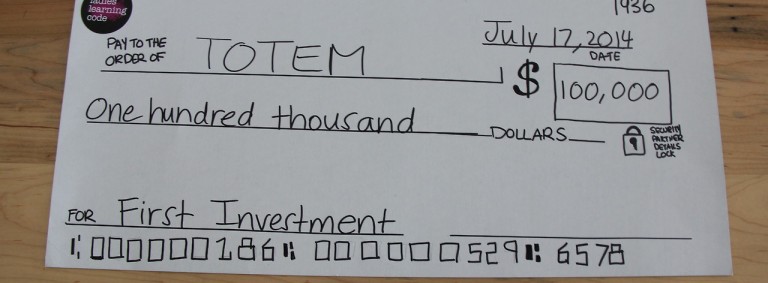 ladies
learning
code
1936
July 17, 2014
DATE
PAY TO THE
ORDER OF
TOTEM
$ 100,000
One hundred thousand DOLLARS
SECURITY
PARTNER
DETAILS
LOCK
FOR First Investment
⑆000000186⑈ 000000529⑈ 6578